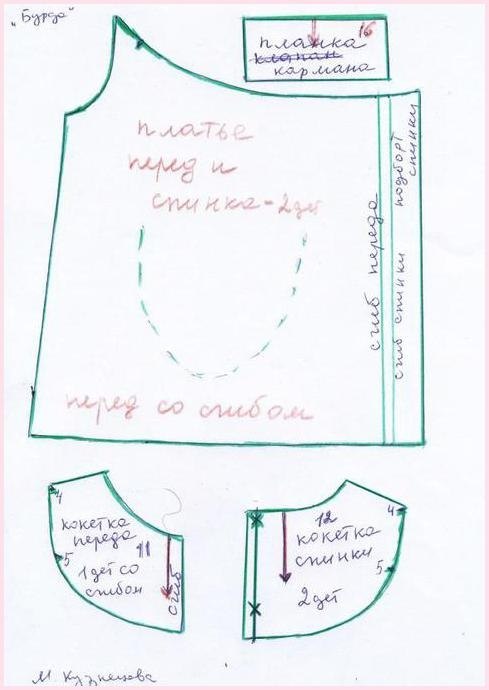 „Бурда"
16
планка
клапан
кармана
платье
перед и
спинка - 2 дет
сгиб переда
сгиб спинки подборт спинки
перед со сгибом
4
кокетка
переда
11
5
1 дет со
сгибом
сгиб
12
4
кокетка
спинки
5
2 дет
М Кузнецова